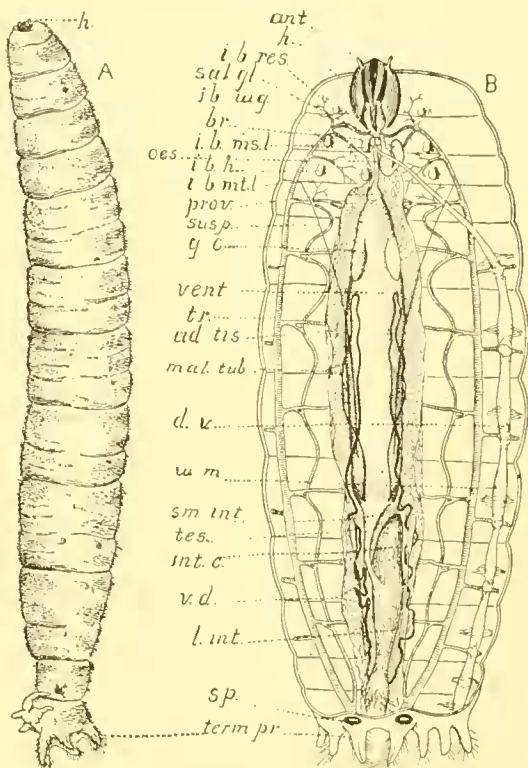 h.
A
B
ant
h.
i b res.
sal gl.
i b wg.
br.
i. b. ms. l
oes
i b h.
i b mt. l
prov.
susp.
g c
vent
tr.
ad tis
mal. tub
d. v.
w m
sm int
tes.
int. c.
v. d
l. int
sp.
term pr